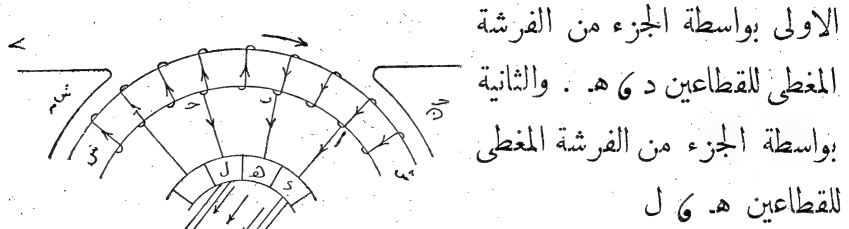 الاولى بواسطة الجزء من الفرشة
المغطى للقطاعين د ، هـ . والثانية
بواسطة الجزء من الفرشة المغطى
للقطاعين هـ ، ل
ل
هـ
د